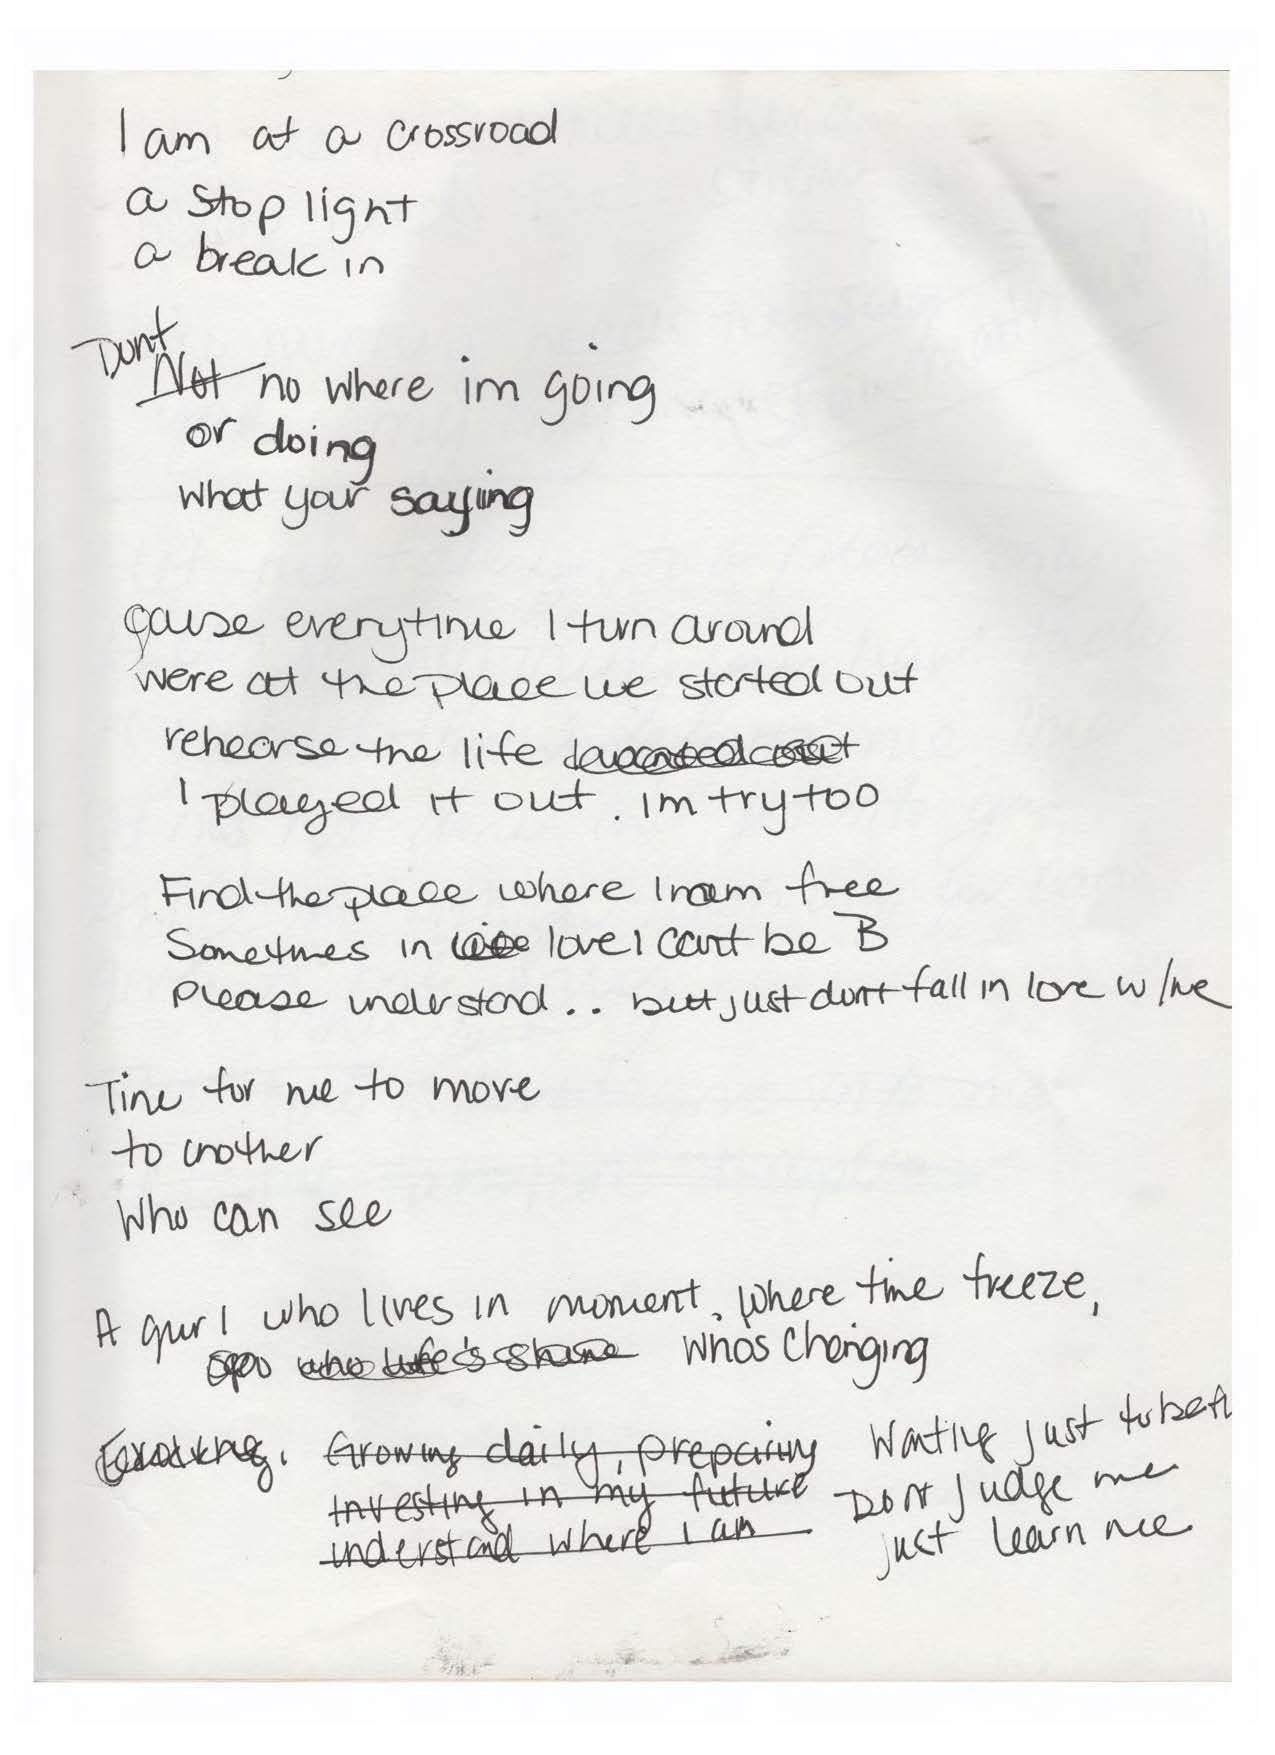 I am at a crossroad
a stop light
a break in
Dont
Not no where im going
or doing
what your saying
cause everytime I turn around
were at the place we started out
rehearse the life
I played it out. im try too
Find the place where I am free
Sometimes in love I cant be B
Please understand.. but just dont fall in love w/me
Time for me to move
to another
Who can see
A gurl who lives in moment, where time freeze,
who life's shine whos changing
Evolving. Growing daily, preparing Waiting just to be
Investing in my future Dont judge me
understand where I am just learn me